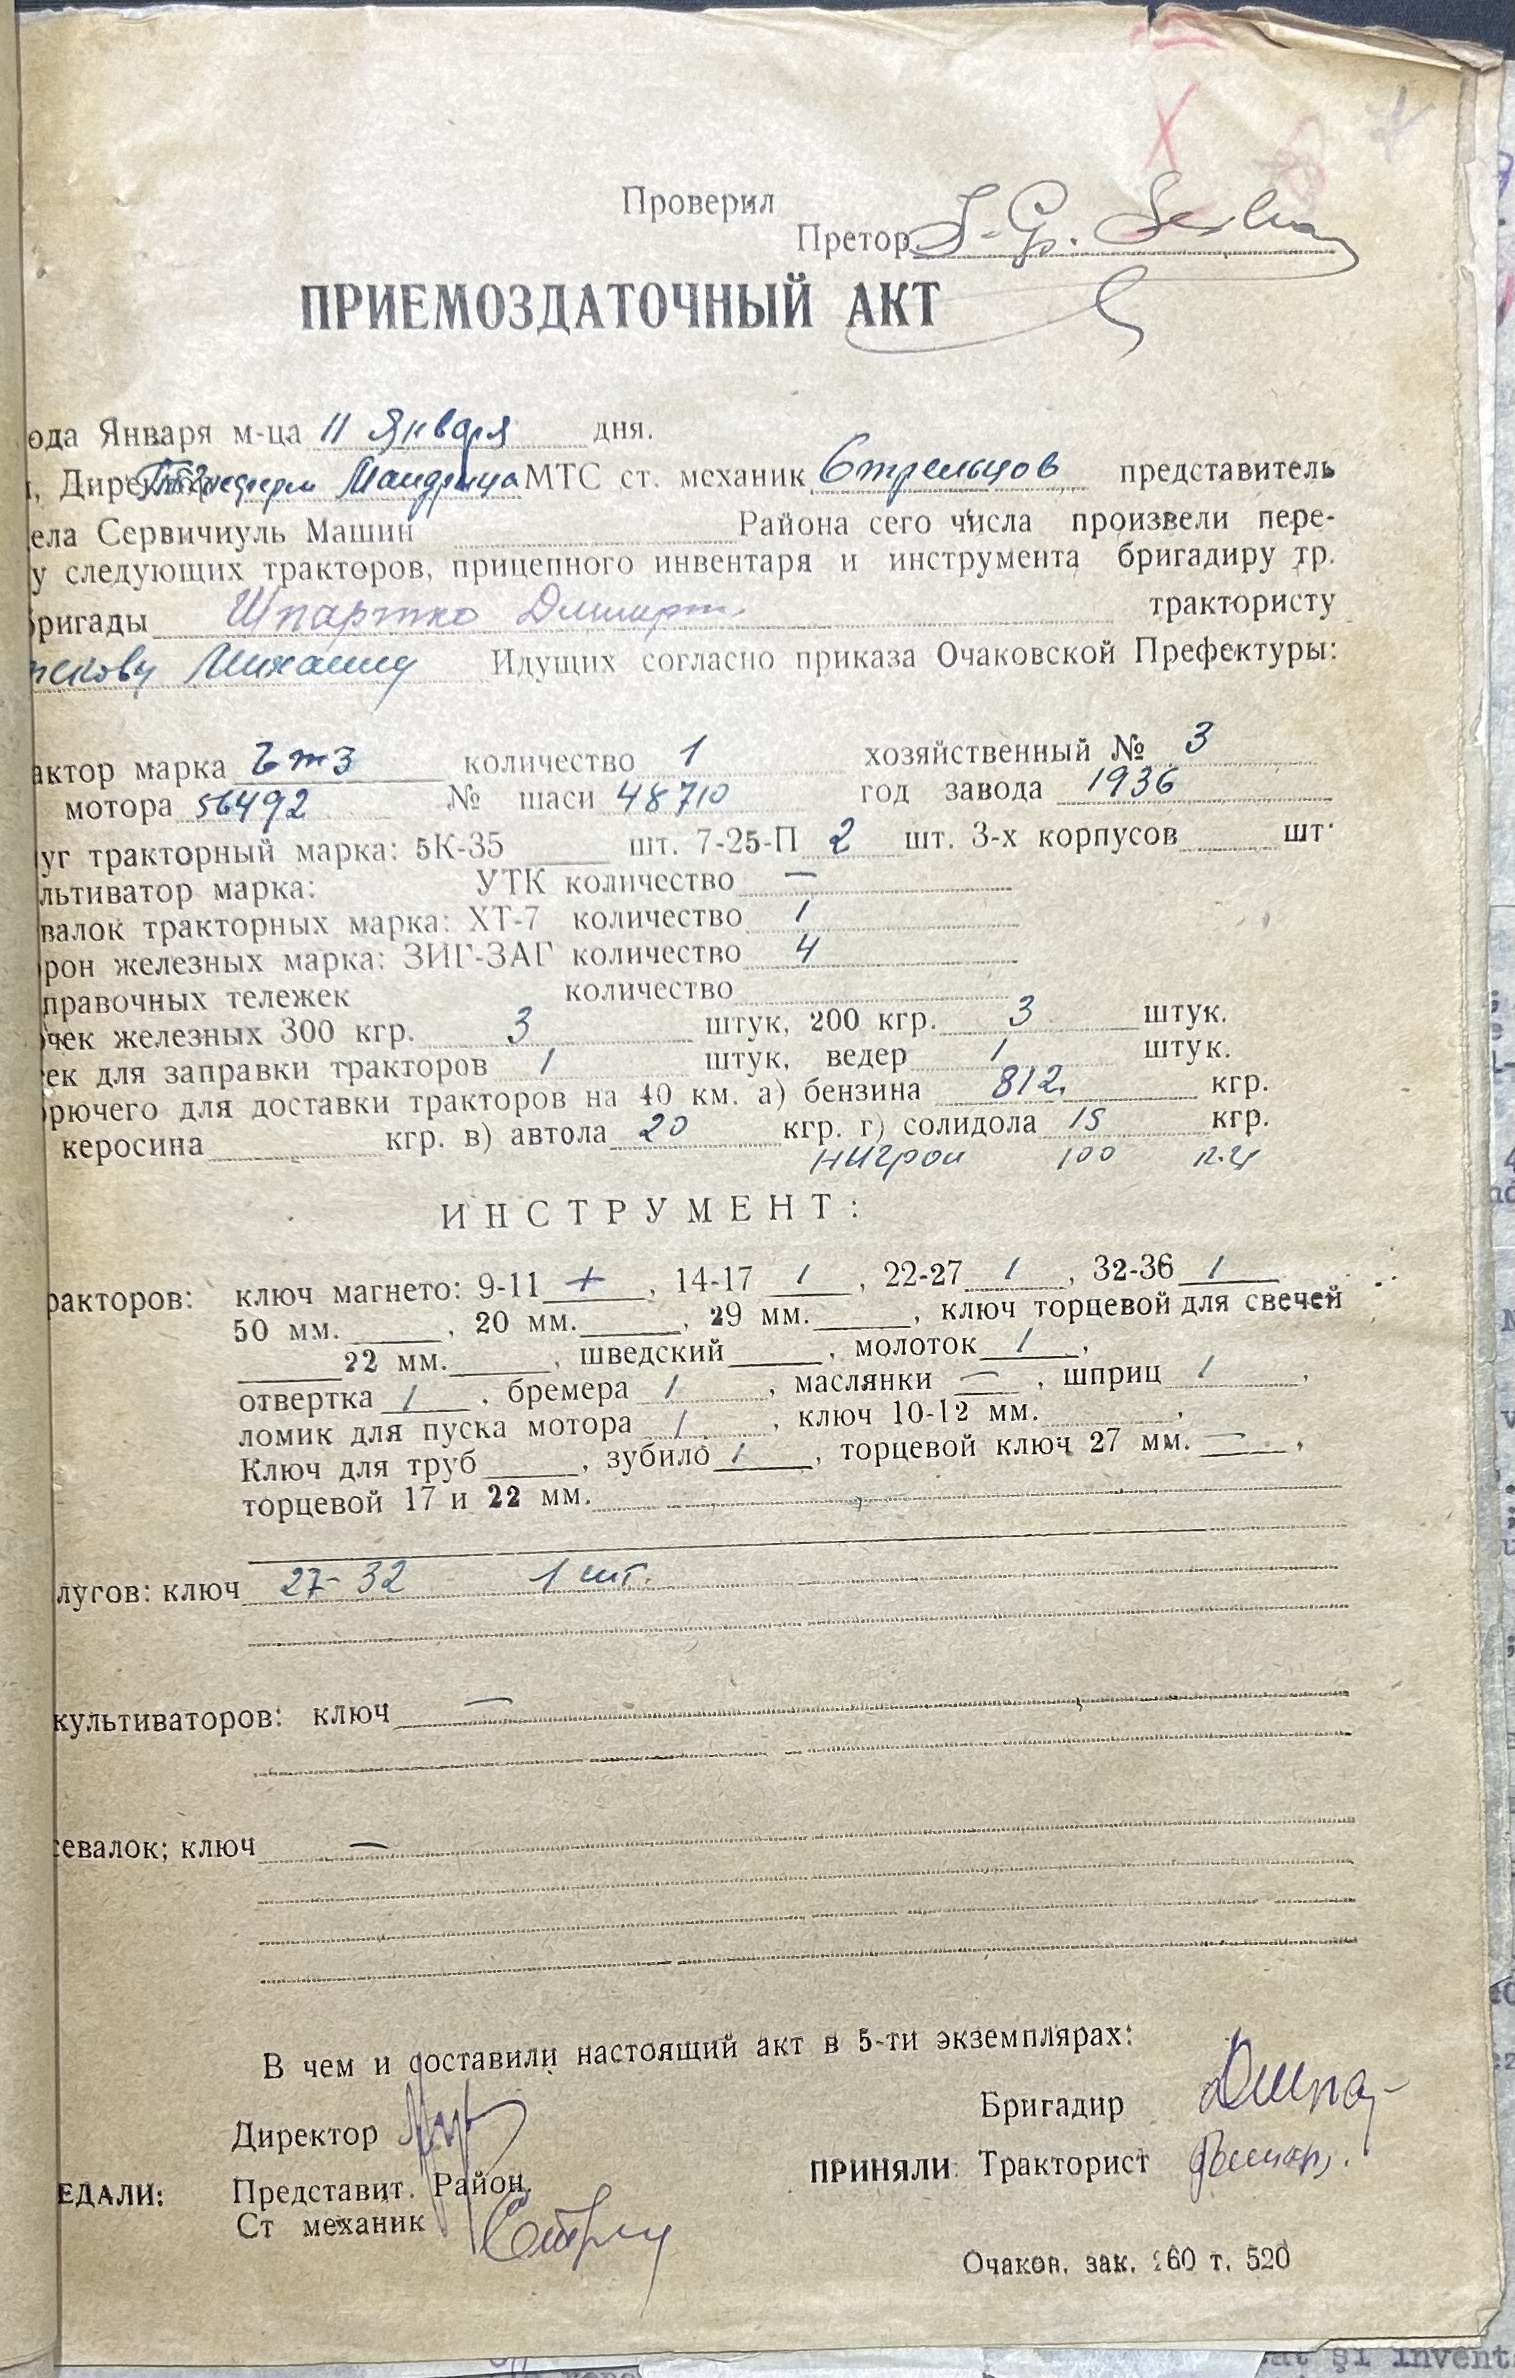 Проверил
Претор
ПРИЕМОЗДАТОЧНЫЙ АКТ
ода Января м-ца 11 Января дня.
, Дирек МТС ст. механик Стрельцов представитель
ела Сервичиуль Машин Района сего числа произвели пере-
у следующих тракторов, прицепного инвентаря и инструмента бригадиру тр.
бригады Шпартко Дмитрт. трактористу
Михаилу Идущих согласно приказа Очаковской Префектуры:
актор марка количество 1 хозяйственный № 3
мотора 56492 № шаси 48710 год завода 1936
уг тракторный марка: 5К-35 шт. 7-25-П 2 шт. 3-х корпусов шт.
льтиватор марка: УТК количество —
валок тракторных марка: ХТ-7 количество 1
рон железных марка: ЗИГ-ЗАГ количество 4
правочных тележек количество
чек железных 300 кгр. 3 штук, 200 кгр. 3 штук.
ек для заправки тракторов 1 штук, ведер 1 штук.
рючего для доставки тракторов на 40 км. а) бензина 812. кгр.
керосина кгр. в) автола 20 кгр. г) солидола 15 кгр.
нигрол 100
ИНСТРУМЕНТ:
ракторов: ключ магнето: 9-11 +, 14-17 1, 22-27 1, 32-36 1
50 мм. , 20 мм. , 29 мм. , ключ торцевой для свечей
22 мм. , шведский , молоток 1,
отвертка 1 , бремера 1 , маслянки — , шприц 1 ,
ломик для пуска мотора 1 , ключ 10-12 мм. ,
Ключ для труб , зубило 1 , торцевой ключ 27 мм. — ,
торцевой 17 и 22 мм.
лугов: ключ 27-32 1 шт.
культиваторов: ключ —
севалок; ключ —
В чем и составили настоящий акт в 5-ти экземплярах:
Бригадир
Директор
ПРИНЯЛИ: Тракторист
ЕДАЛИ: Представит. Район.
Ст механик
Очаков. зак. 160 т. 520